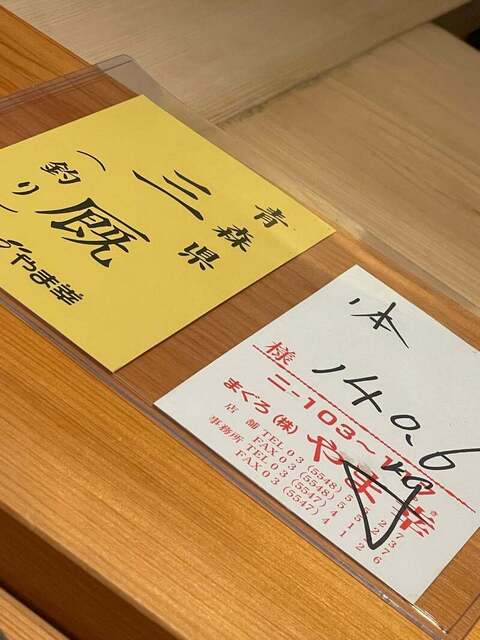 青森県
三厩
(釣り)
やま幸
1本
140.6
kg
様
ニ-103~
まぐろ(株)やま幸
店舗 TEL 03 (5548) 5
FAX 03 (5548) 5
事務所 TEL 03 (5547) 4
FAX 03 (5547) 4 1 2 6